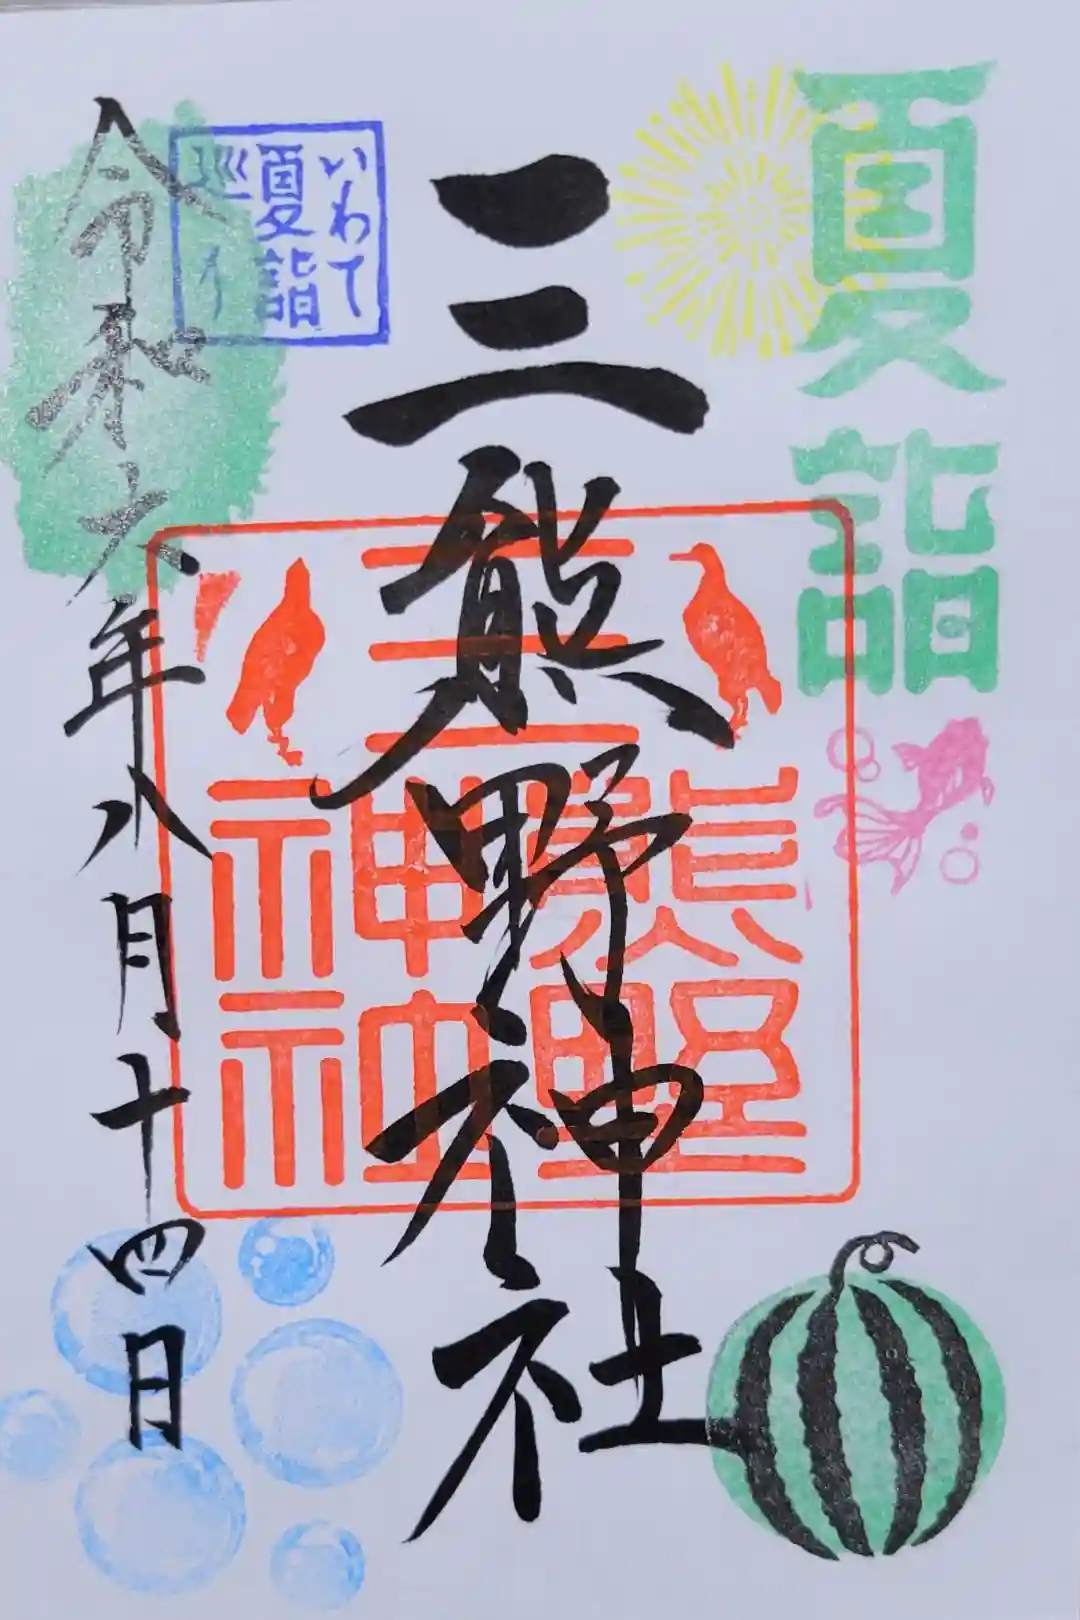 夏詣
三熊野神社
三
熊野
神社
いわて
夏詣
巡り
令和六年八月十四日